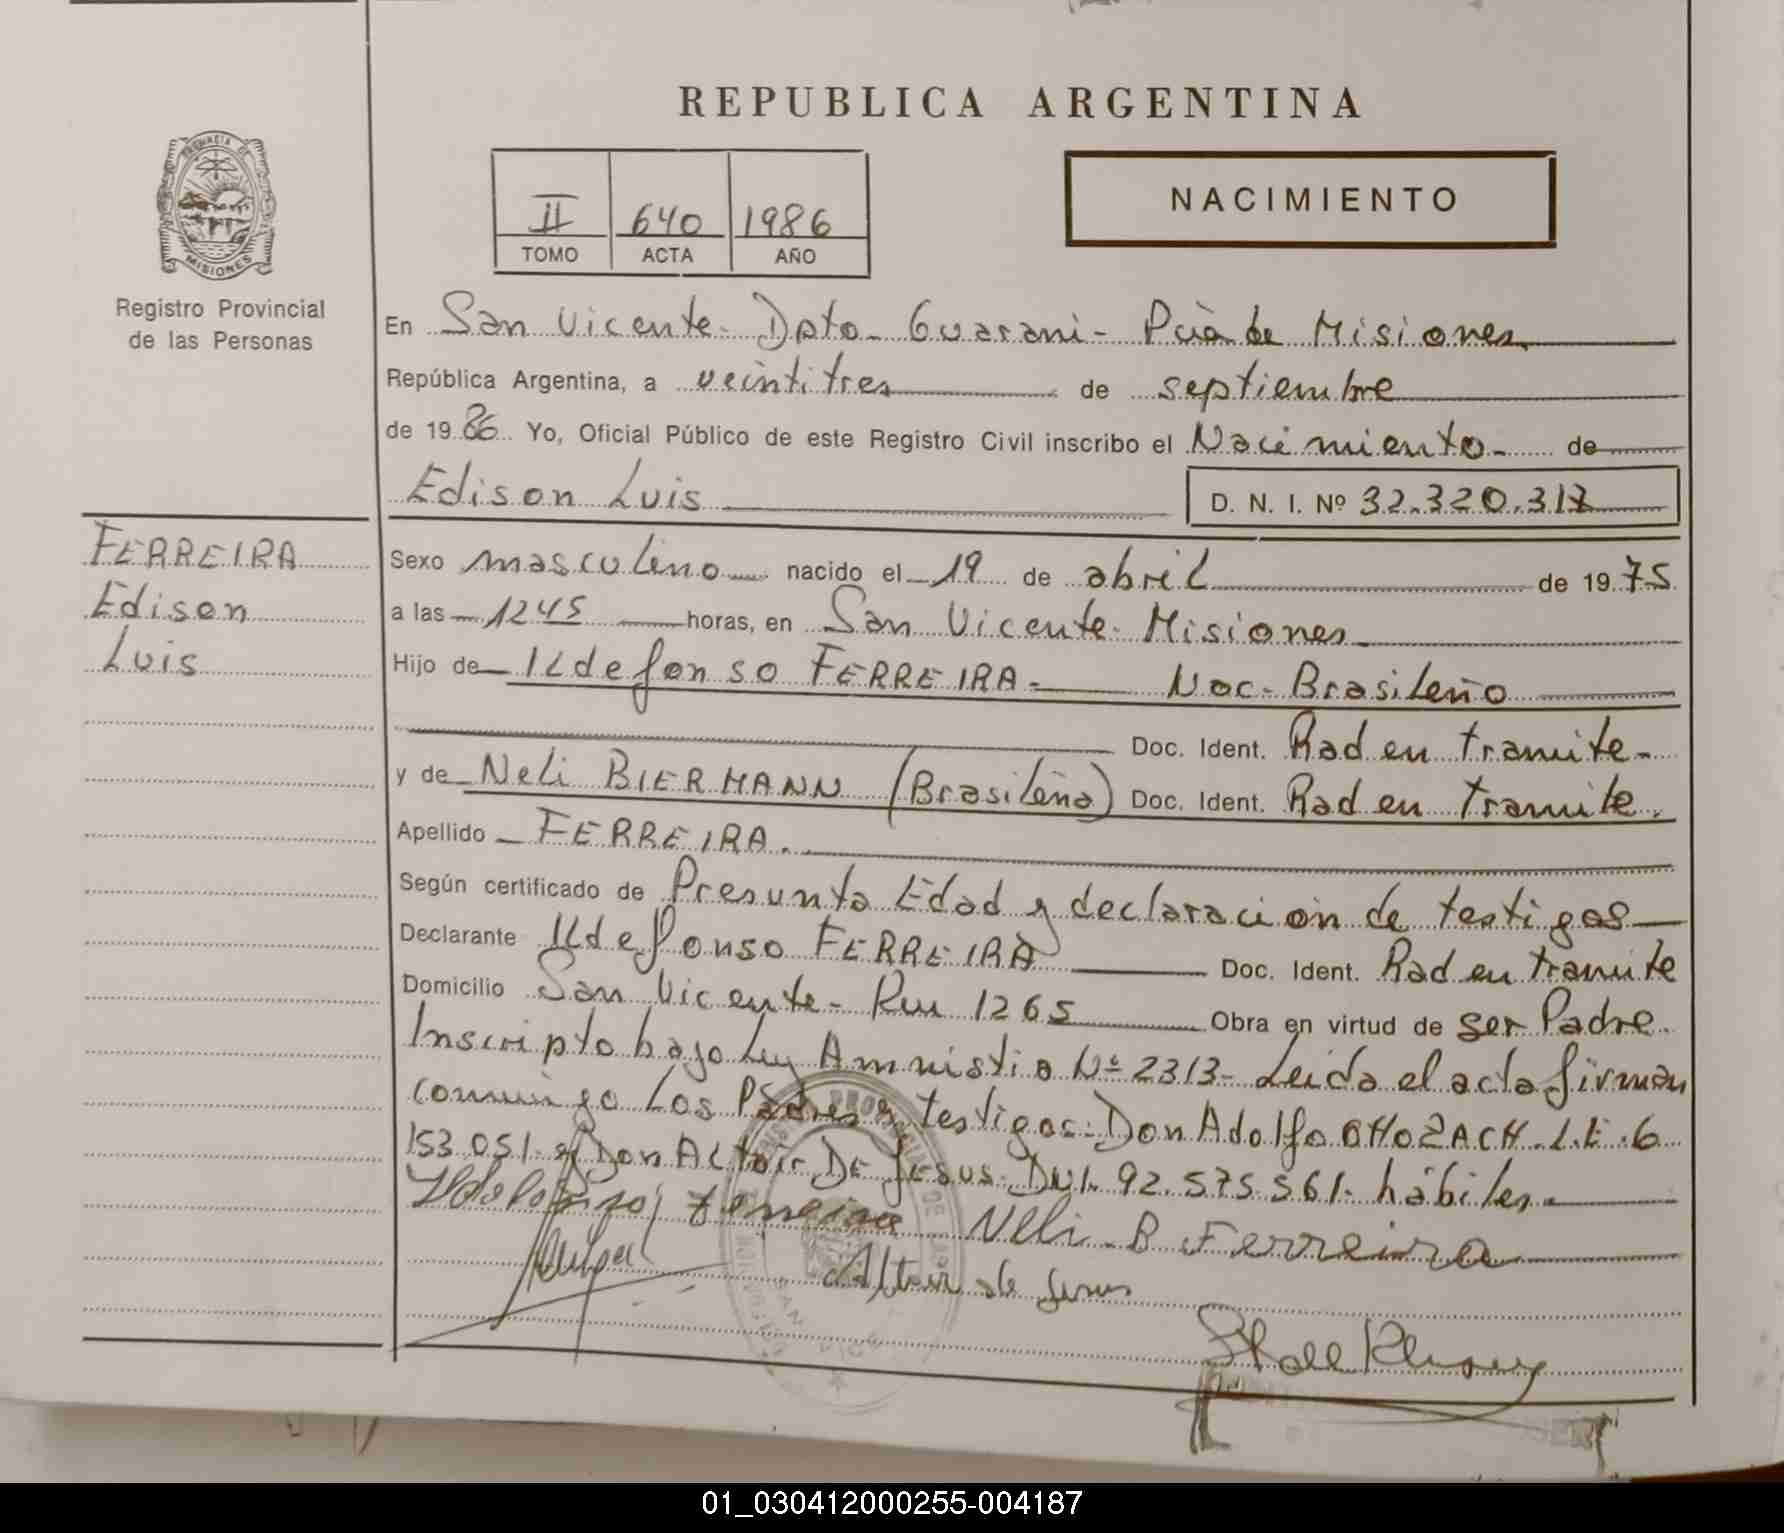 REPUBLICA ARGENTINA
PROVINCIA DE
MISIONES
Registro Provincial
de las Personas
II 640 1986
TOMO ACTA AÑO
NACIMIENTO
En San Vicente- Dpto- Guarani- Pcia de Misiones
República Argentina, a veintitres de septiembre
de 19 86 Yo, Oficial Público de este Registro Civil inscribo el Nacimiento- de
Edison Luis
D. N. I. Nº 32.320.317
FERREIRA
Edison
Luis
Sexo masculino nacido el 19 de abril de 19 75
a las 1245 horas, en San Vicente- Misiones
Hijo de ILdefonso FERREIRA- Nac- Brasileño
Doc. Ident. Rad en tramite-
y de Neli BIERMANN (Brasileña) Doc. Ident. Rad en tramite.
Apellido FERREIRA.
Según certificado de Presunta Edad y declaración de testigos
Declarante ILdefonso FERREIRA Doc. Ident. Rad en tramite
Domicilio San Vicente- Ruu 1265 Obra en virtud de ser Padre.
Inscripto bajo Ley Amnistia Nº 2313- Leida el acta firman
conmigo Los Padres y testigos: Don Adolfo L.E. 6
153.051- y Don Altair DE JESUS- DNI- 92.575.561- hábiles.
Ildefonso Ferreira Neli B Ferreira
Altair de Jesus
01_030412000255-004187